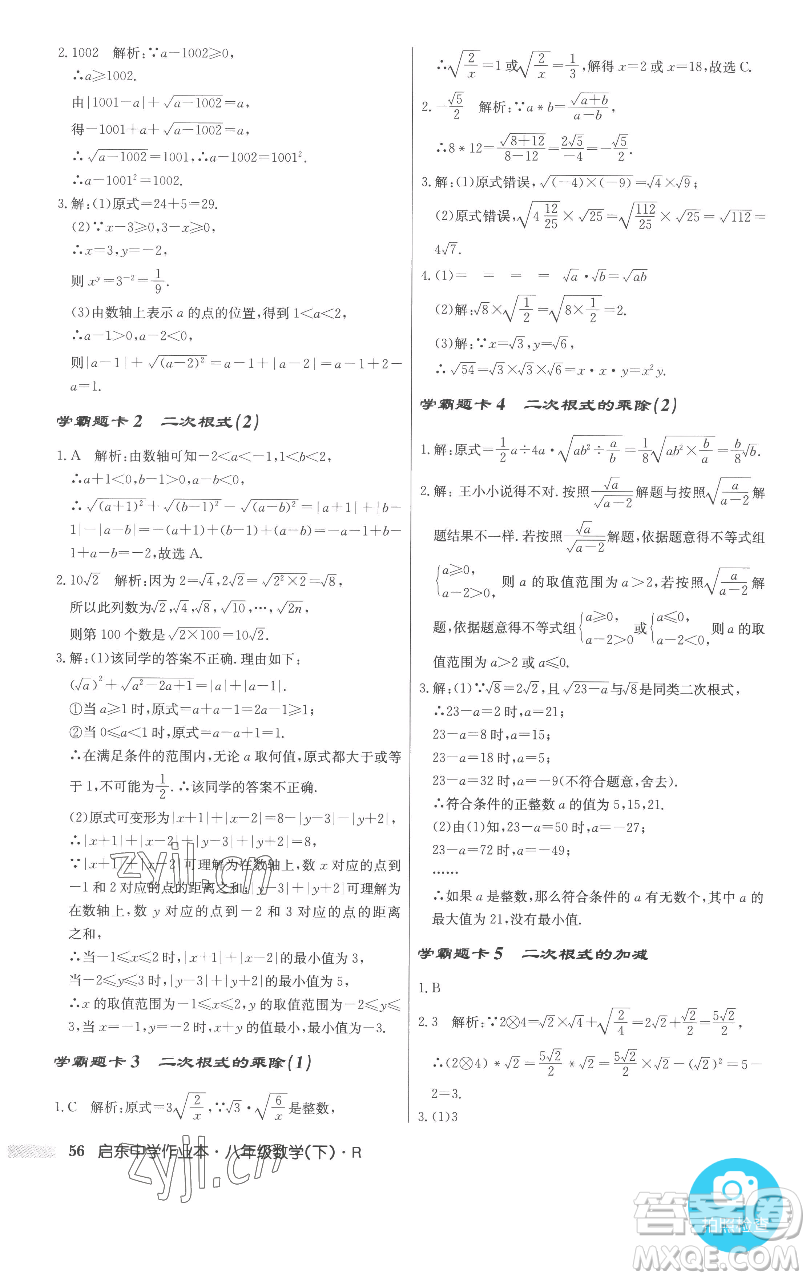 2. 1002 解析:∵a－1002⩾0,
∴a⩾1002.
由|1001－a|＋√(a－1002)＝a,
得－1001＋a＋√(a－1002)＝a,
∴√(a－1002)＝1001,∴a－1002＝1001².
∴a－1001²＝1002.
3. 解:(1)原式＝24＋5＝29.
(2)∵x－3⩾0,3－x⩾0,
∴x＝3,y＝－2.
则xʸ＝3⁻²＝1/9.
(3)由数轴上表示 a 的点的位置,得到 1<a<2,
∴a－1>0,a－2<0,
则|a－1|＋√((a－2)²)＝|a－1|＋|a－2|＝a－1＋2－
a＝1.
学霸题卡 2 二次根式(2)
1. A 解析:由数轴可知－2<a<－1,1<b<2,
∴a＋1<0,b－1>0,a－b<0,
∴√((a＋1)²)＋√((b－1)²)－√((a－b)²)＝|a＋1|＋|b－
1|－|a－b|＝－(a＋1)＋(b－1)＋(a－b)＝－a－1＋b－
1＋a－b＝－2,故选 A.
2. 10√2 解析:因为 2＝√4,2√2＝√(2²×2)＝√8,
所以此列数为√2,√4,√6,√8,√10,…,√(2n),
则第 100 个数是√(2×100)＝10√2.
3. 解:(1)该同学的答案不正确.理由如下:
(√a)²＋√(a²－2a＋1)＝|a|＋|a－1|,
①当 a⩾1 时,原式＝a＋a－1＝2a－1⩾1;
②当 0⩽a<1 时,原式＝a－a＋1＝1,
∴在满足条件的范围内,无论 a 取何值,原式都大于或等
于 1,不可能为1/2.∴该同学的答案不正确.
(2)原式可变形为|x＋1|＋|x－2|＋|y－3|＋|y＋2|＝8,
∴|x＋1|＋|x－2|＝8－(|y－3|＋|y＋2|),
∵|x＋1|＋|x－2|可理解为在数轴上,数 x 对应的点到
－1 和 2 对应的点的距离之和;|y－3|＋|y＋2|可理解为
在数轴上,数 y 对应的点到－2 和 3 对应的点的距离
之和,
∴当－1⩽x⩽2 时,|x＋1|＋|x－2|的最小值为 3;
当－2⩽y⩽3 时,|y－3|＋|y＋2|的最小值为 5,
∴x 的取值范围为－1⩽x⩽2,y 的取值范围为－2⩽y⩽3,
故当 x＝－1,y＝－2 时,x＋y 的值最小,最小值为－3.
学霸题卡 3 二次根式的乘除(1)
1. C 解析:原式＝3√(2/x),∵√3·√(6/x)是整数,
∴√(2/x)＝1 或√(2/x)＝1/3,解得 x＝2 或 x＝18,故选 C.
2. －√5/2 解析:∵a＊b＝√(a＋b)/(a－b),
∴8＊12＝√(8＋12)/(8－12)＝2√5/－4＝－√5/2.
3. 解:(1)原式错误,√((－4)×(－9))＝√4×√9;
(2)原式错误,√(4 12/25)×√25＝√(112/25)×√25＝√112＝
4√7.
4. (1)＝ ＝ ＝ √a·√b＝√(ab)
(2)解:√8×√(1/2)＝√(8×1/2)＝2.
(3)解:∵x＝√3,y＝√6,
∴√54＝√3×√3×√6＝x·x·y＝x²y.
学霸题卡 4 二次根式的乘除(2)
1. 解:原式＝1/2a÷4a·√(ab²÷a/b)＝1/8√(ab²×b/a)＝b/8√b.
2. 解: 王小小说得不对.按照√a/√(a－2)解题与按照√(a/(a－2))解
题结果不一样.若按照√a/√(a－2)解题,依据题意得不等式组
{a⩾0, a－2>0, 则 a 的取值范围为 a>2,若按照√(a/(a－2))解
题,依据题意得不等式组{a⩾0, a－2>0 或{a⩽0, a－2<0,则 a 的取
值范围为 a>2 或 a⩽0.
3. 解:(1)∵√8＝2√2,且√(23－a)与√8是同类二次根式,
∴23－a＝2 时,a＝21;
23－a＝8 时,a＝15;
23－a＝18 时,a＝5;
23－a＝32 时,a＝－9(不符合题意,舍去).
∴符合条件的正整数 a 的值为 5,15,21.
(2)由(1)知,23－a＝50 时,a＝－27;
23－a＝72 时,a＝－49;
……
∴如果 a 是整数,那么符合条件的 a 有无数个,其中 a 的
最大值为 21,没有最小值.
学霸题卡 5 二次根式的加减
1. B
2. 3 解析:∵2⊗4＝√2×√4＋√(2/4)＝2√2＋√2/2＝5√2/2,
∴(2⊗4)＊√2＝5√2/2＊√2＝5√2/2×√2－(√2)²＝5－
2＝3.
3. (1)3
56 启东中学作业本·八年级数学(下)·R
zyjl.cn
zyjl.cn
答案卷
拍照检查
MXQE.COM